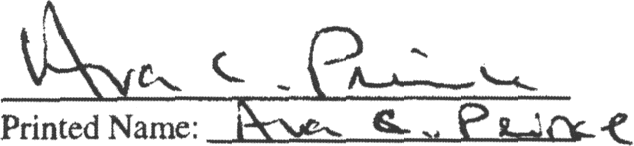 Ava C. Prince
Printed Name: Ava C. Prince